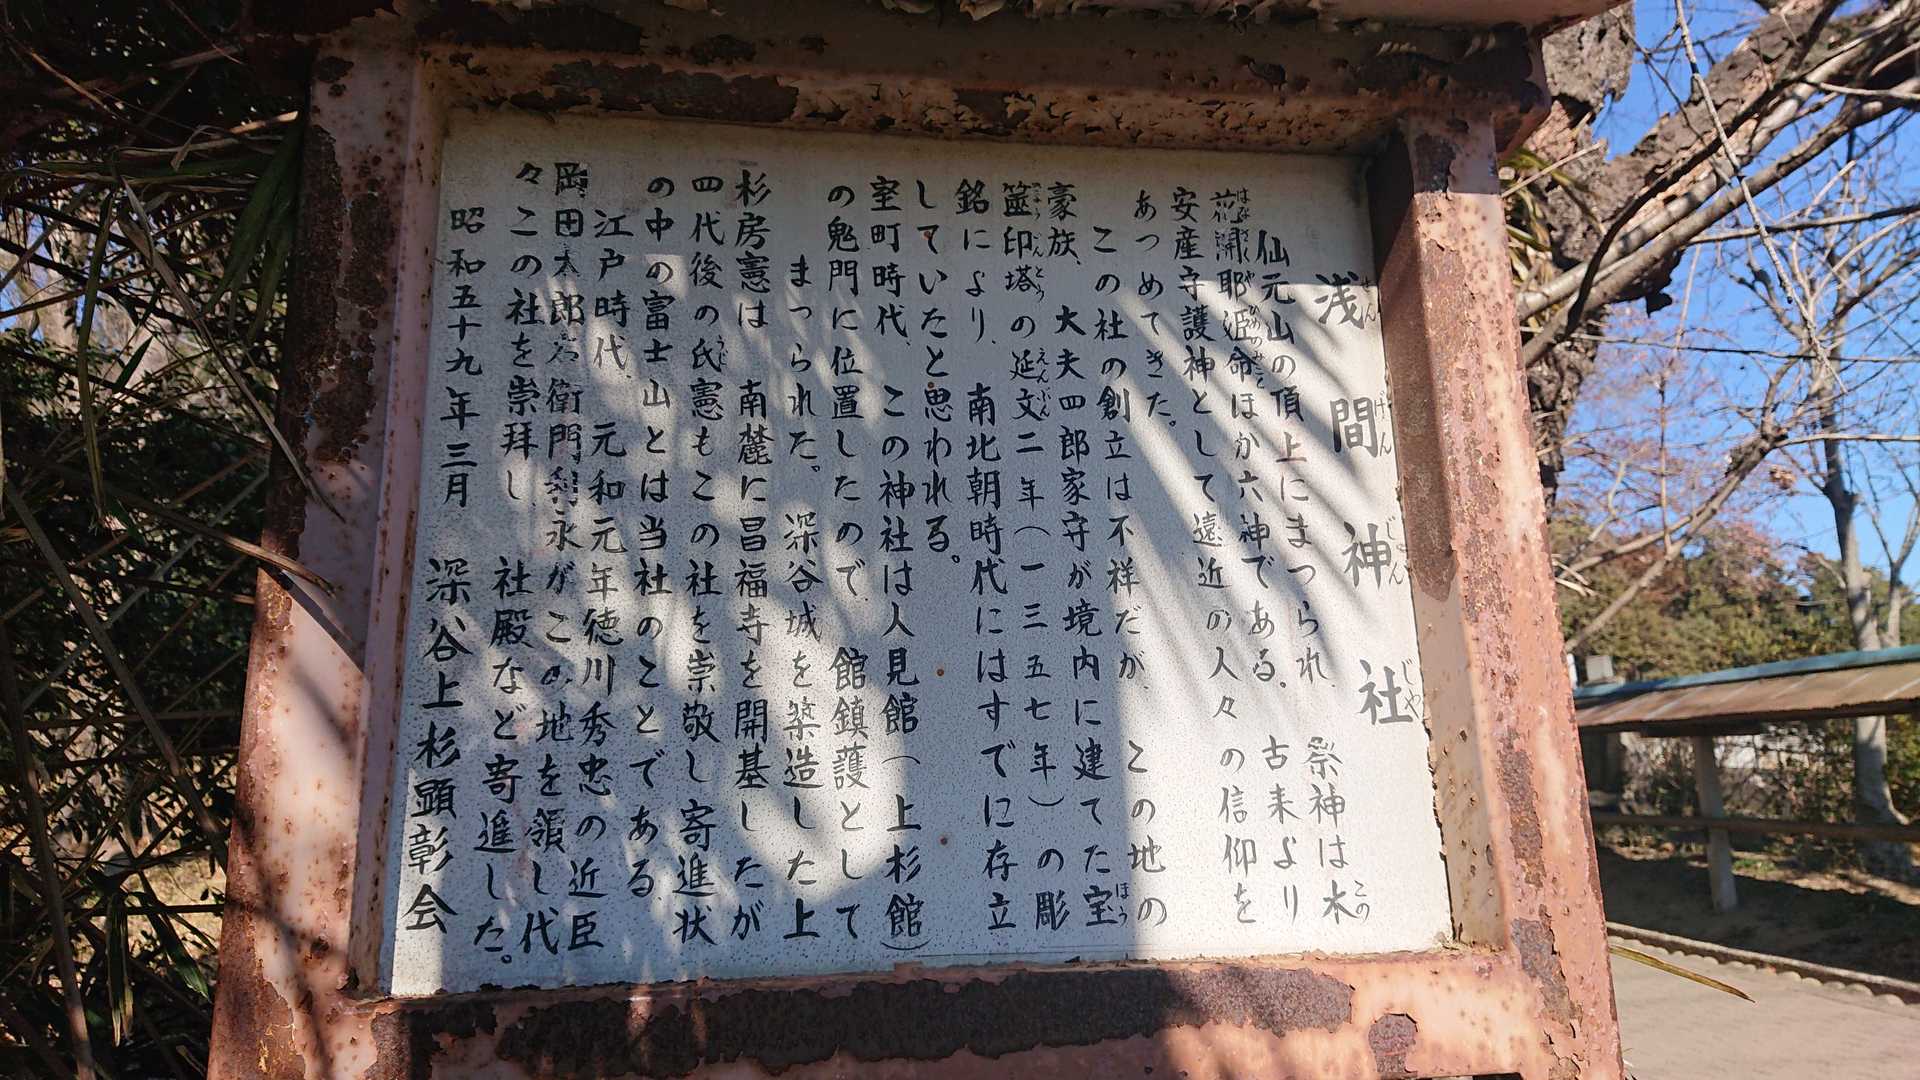 浅間神社
仙元山の頂上にまつられ、祭神は木
花開耶姫命ほか六神である。古来より
安産守護神として遠近の人々の信仰を
あつめてきた。
この社の創立は不祥だが、この地の
豪族、大夫四郎家守が境内に建てた宝
篋印塔の延文二年（一三五七年）の彫
銘により、南北朝時代にはすでに存立
していたと思われる。
室町時代、この神社は人見館（上杉館）
の鬼門に位置したので、館鎮護として
まつられた。深谷城を築造した上
杉房憲は、南麓に昌福寺を開基したが
四代後の氏憲もこの社を崇敬し寄進状
の中の富士山とは当社のことである。
江戸時代、元和元年徳川秀忠の近臣
岡田太郎右衛門利永がこの地を領し代
々この社を崇拝し、社殿など寄進した。
昭和五十九年三月　深谷上杉顕彰会